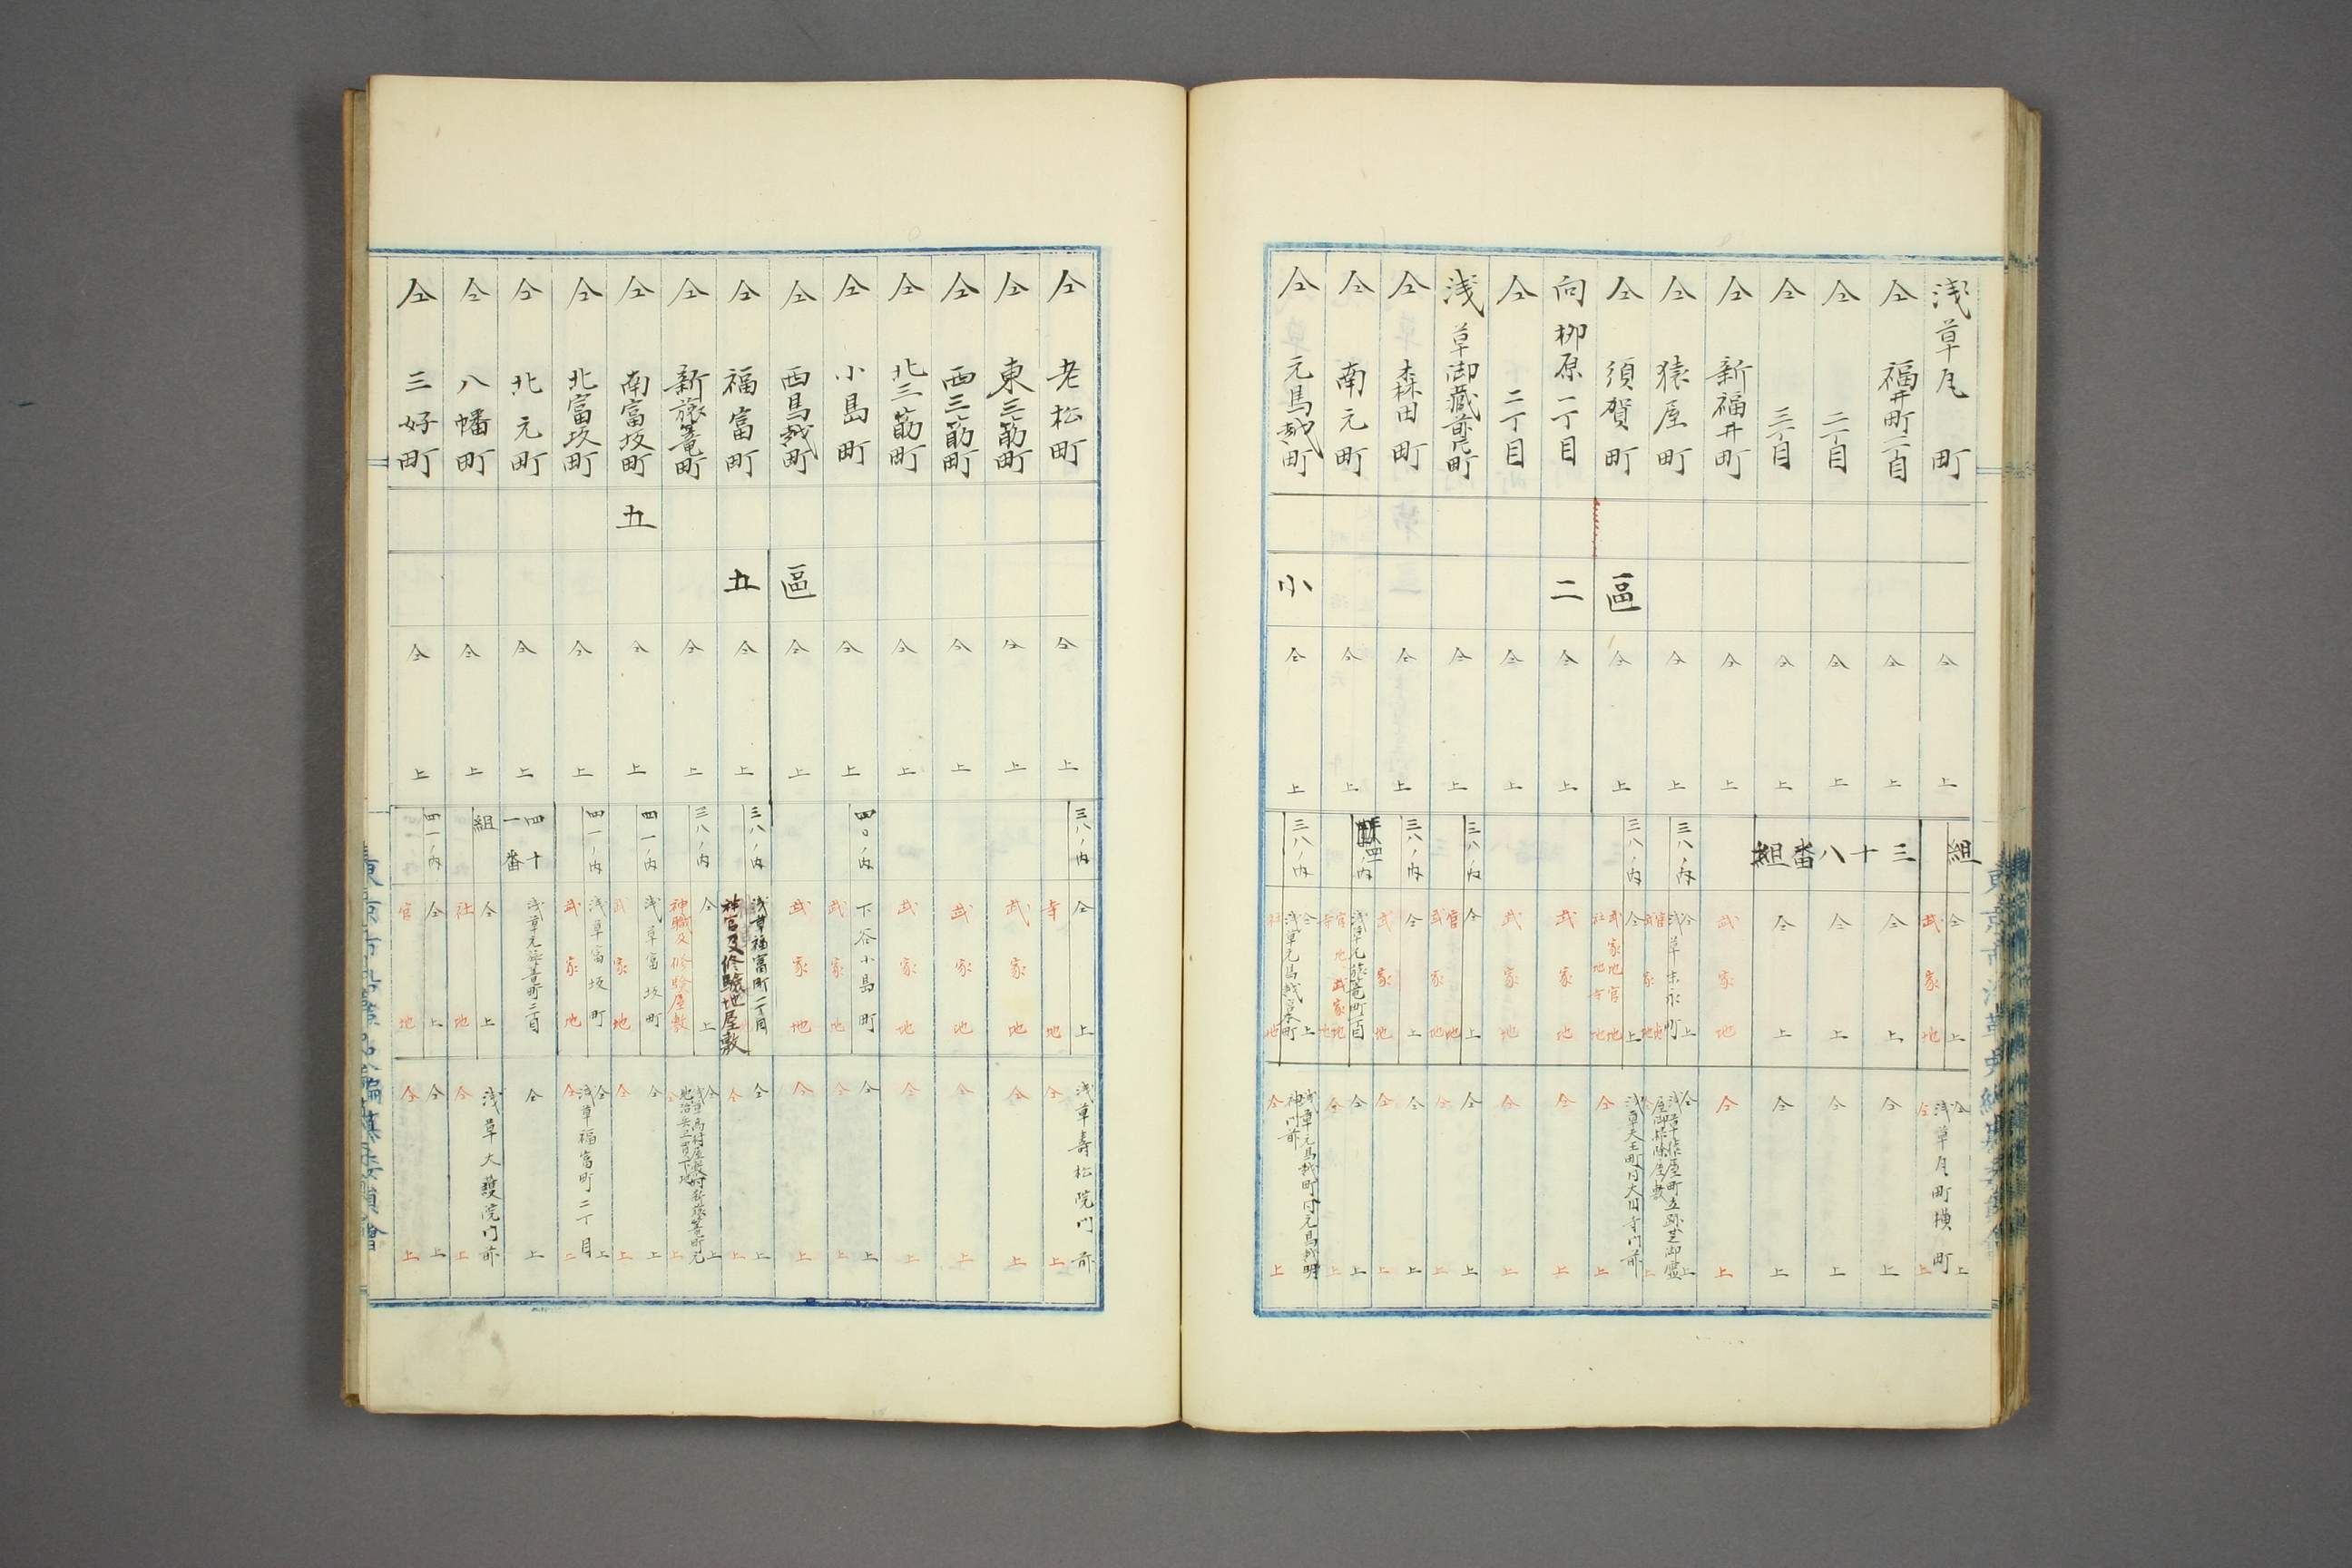 浅草瓦町
仝 福井町一丁目
仝 二丁目
仝 三丁目
仝 新福井町
仝 猿屋町
仝 須賀町
向柳原一丁目
仝 二丁目
浅草御蔵前片町
仝 森田町
仝 南元町
仝 元馬越町
區
二
小
仝上
仝上
仝上
仝上
仝上
仝上
仝上
仝上
仝上
仝上
仝上
仝上
仝上
組
三十八番組
三八ノ内
三八ノ内
三八ノ内
三八ノ内
三八ノ内
仝上
武家地
仝上
仝上
仝上
武家地
仝上
浅草末永町
仝上
武家地
武家地
仝上
仝上
武家地
浅草元旅篭町一丁目
仝上
仝上
浅草瓦町横町
仝上
仝上
仝上
仝上
仝上
仝上
浅草天王町内大円寺門前
仝上
仝上
仝上
仝上
仝上
仝上
仝上
仝上
仝上
浅草元馬越町内元馬越明神門前
仝上
仝 老松町
仝 東三筋町
仝 西三筋町
仝 北三筋町
仝 小島町
仝 西馬越町
仝 福富町
仝 新旅篭町
仝 南富坂町
仝 北富坂町
仝 北元町
仝 八幡町
仝 三好町
五
區
五
仝上
仝上
仝上
仝上
仝上
仝上
仝上
仝上
仝上
仝上
仝上
仝上
仝上
三八ノ内
四〇ノ内
三八ノ内
三八ノ内
四一ノ内
四一ノ内
四十一番
組
四一ノ内
仝上
寺地
武家地
武家地
武家地
下谷小島町
武家地
武家地
浅草福富町二丁目
神官及修驗地屋敷
仝上
神職及修験屋敷
浅草富坂町
武家地
浅草富坂町
武家地
浅草元旅篭町二丁目
仝上
社地
仝上
官地
浅草壽松院門前
仝上
仝上
仝上
仝上
仝上
仝上
仝上
仝上
仝上
仝上
仝上
仝上
仝上
仝上
浅草福富町二丁目
仝上
仝上
浅草大護院門前
仝上
仝上
仝上